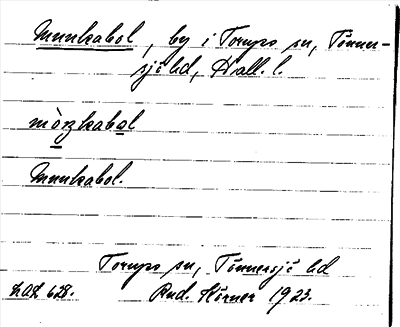 Munkabol, by i Torups sn, Tönner-
sjö hd, Hall. l.
mòŋkabol
Munkabol.
Torups sn, Tönnersjö hd
LAL 628. Rud. Körner 1923.